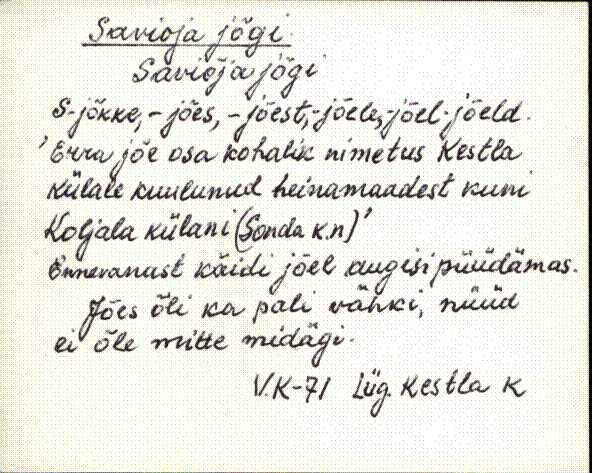 Savioja jõgi.
Savioja jõgi
S-jõkke, - jões, - jõest, -jõele, -jõel -jõeld.
'Erra jõe osa kohalik nimetus Kestla
külale kuulunud heinamaadest kuni
Koljala külani (Sonda k.n)'
Ennevanast käidi jõel augisi püüdämas.
Jões õli ka pali vähki, nüüd
ei õle mitte midägi.
V.K-71 Lüg. Kestla k